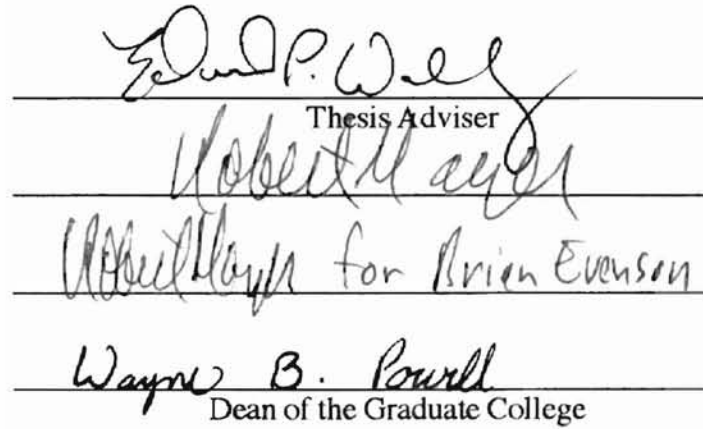 Edward P. Walkiewicz
Thesis Adviser
Robert Mayer
Robert Mayer for Brian Evenson
Wayne B. Powell
Dean of the Graduate College